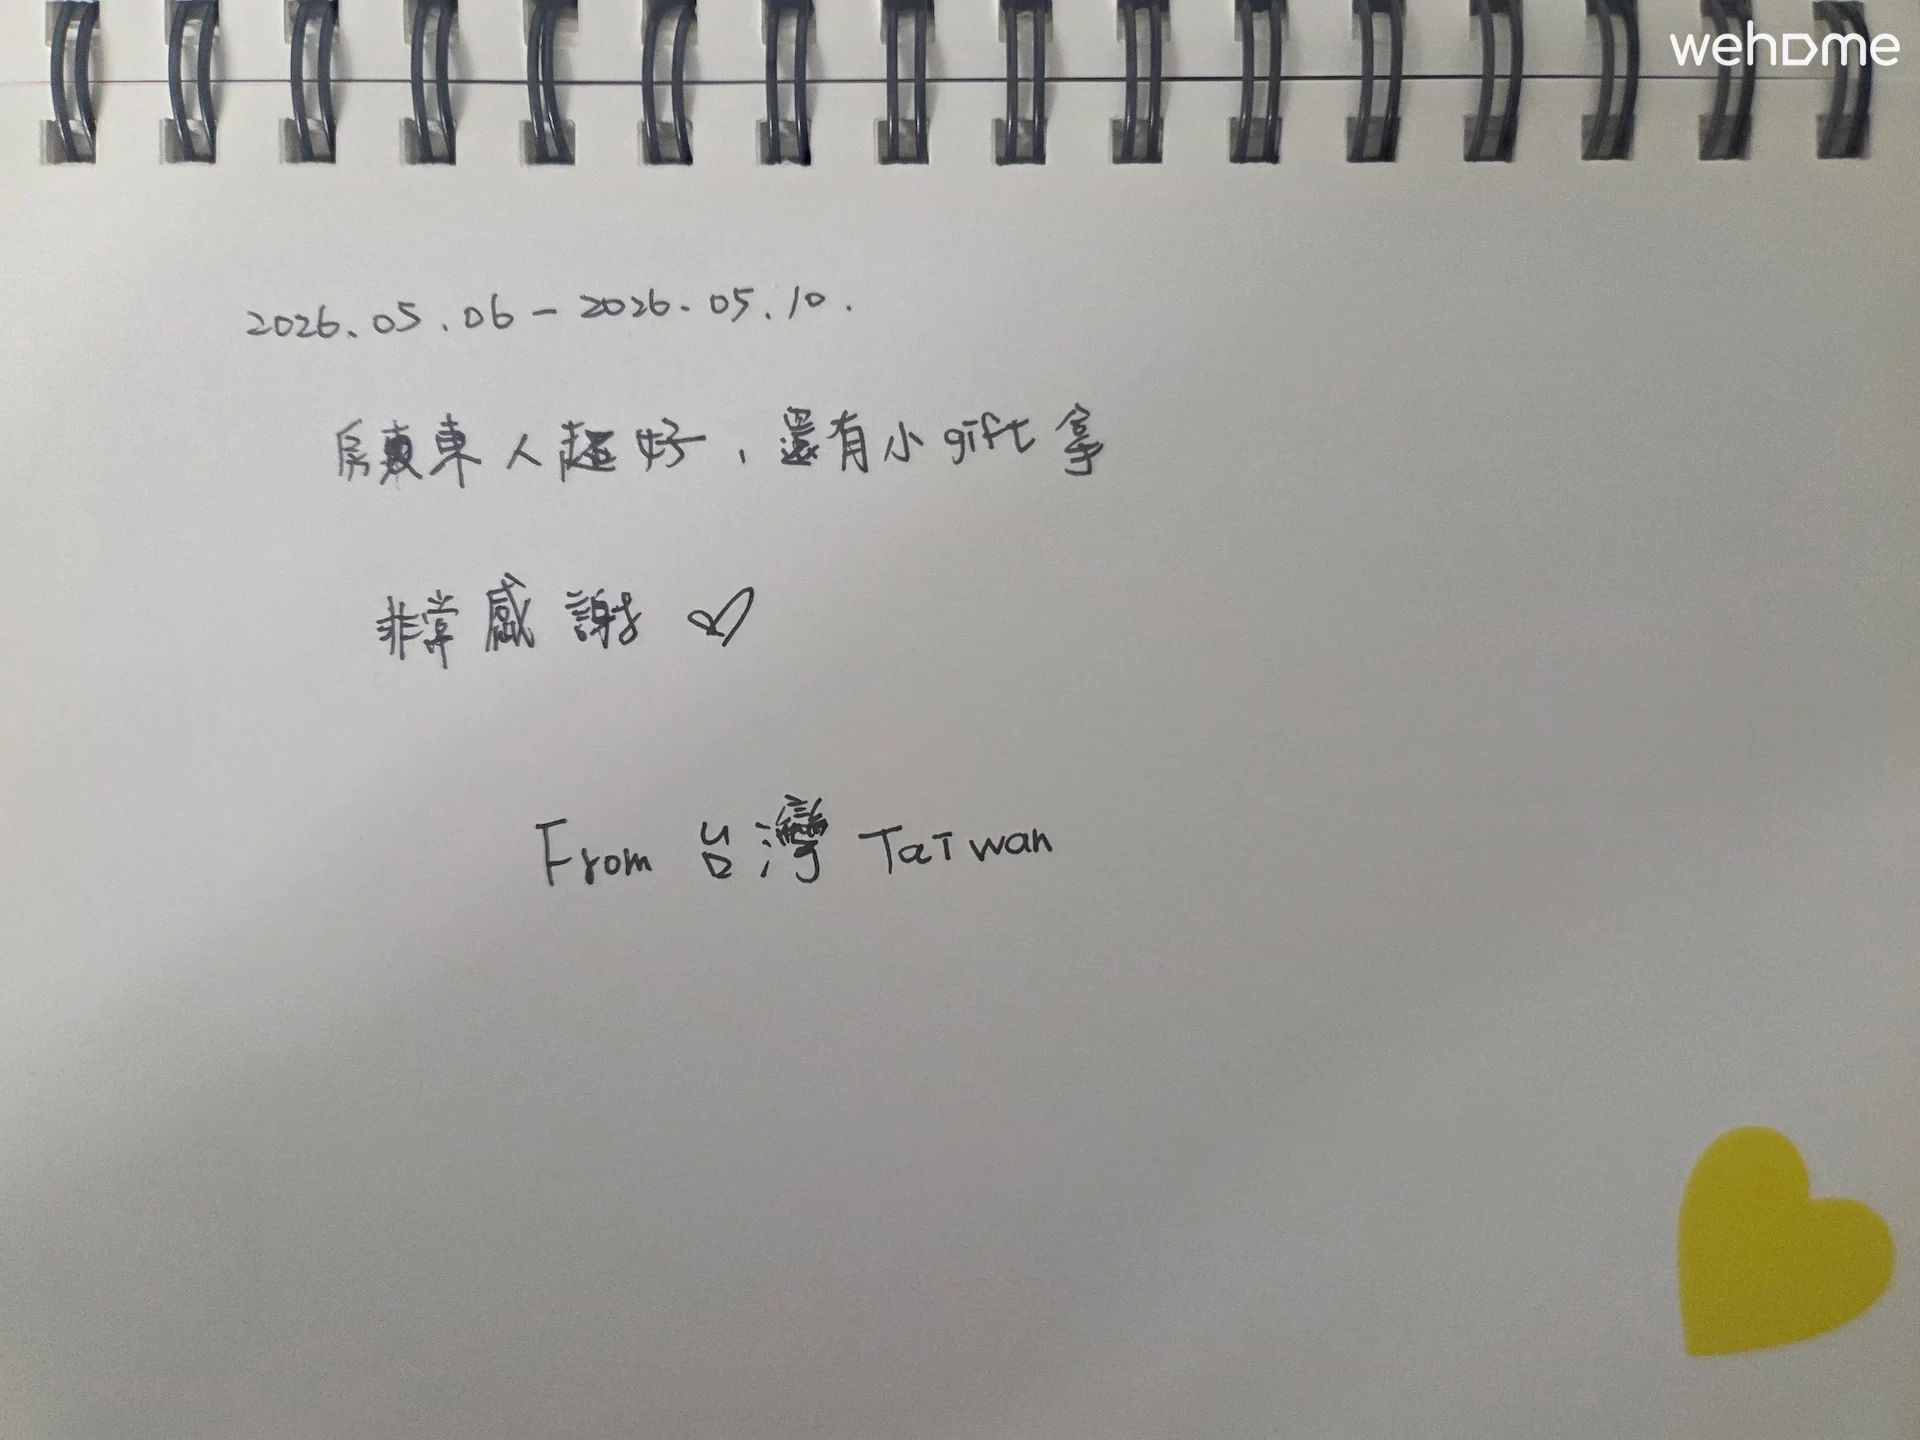 wehome
2026.05.06 - 2026.05.10.
房東人超好，還有小gift拿
非常感謝♡
From 台灣 Taiwan